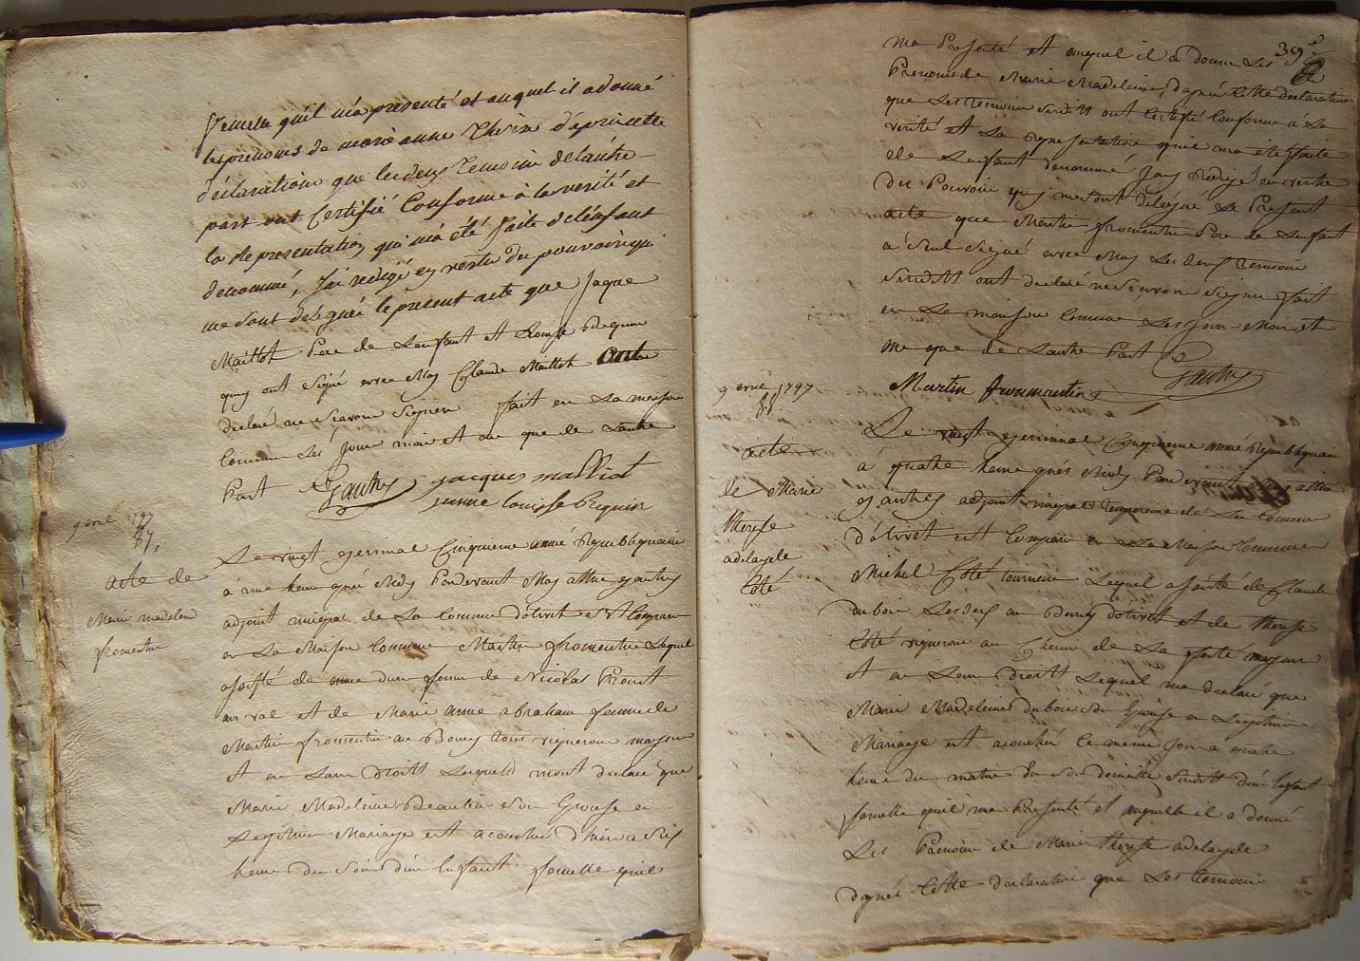 femelle quil m'a presenté et auquel il a donné
les prenoms de marie anne Therese d'après cette
déclaration que les deux temoins de l'autre
part ont Certifié Conforme à la verité et
la representation qui m'a été faite de l'enfant
denommé, J'ai redigé en vertu du pouvoir qui
me sont delegués le present acte que Jaque
Maillot Pere de Lenfant et Louise Pequin
quy ont Signé avec Moy Claude Maillot ont
declaré ne Scavoir Signer fait en La maison
Commune Les Jour mois et an que de Lautre
Part Gauthey jacques malliot
janne louisse Pequin
9 avril 1797
87.
acte de
Marie madelene
fromentin
Le vingt germinal Cinquieme année Republiquaine
à une heure après Midy Pardevant Moy gauthey
adjoint municipal de La Commune d'olivet est Comparu
en La Maison Commune Martin fromentin Lequel
assisté de anne femme de Nicolas Prout
au val et de Marie anne abraham femme de
Martin fromentin au Bourg tous vignerons majeur
et au Lieu droitt Lesquels m'ont declaré que
Marie Madeleine Beautin Son Epouse en
Legitime Mariage est acouchée d'hier a Six
heure du Soir d'un Enfant femelle quil
39
ma Presenté et auquel il a donné Les
Prenoms de Marie Madeleine, d'après Cette declaration
que Les temoins Susditt ont Certifié Conforme à La
verité et La representation qui ma eté faite
de Lenfant denommé Jay Redigé en vertu
du Pouvoir quy me sont delegué Le Present
acte que Martin fromentin Pere de Lenfant
a Seul Signé avec Moy Les deux temoins
Susditt ont declaré ne Scavoir Signer fait
en La maison Commune Les Jour Mois et
an que de Lautre Part
Gauthey
Martin fromantin
9 avril 1797
88
acte
de Marie
therese
adelayde
Coté
Le vingt germinal Cinquieme année Republiquaine
à quatre heure après Midy Pardevant
gauthey adjoint municipal de La Commune
d'olivet est Comparu en La Maison Commune
Michel Coté tourneur Lequel assisté de Claude
dubois au Bourg d'olivet et de therese
Coté vigneronne au de La ferté majeur
et au Lieu droitt Lequel ma declaré que
Marie Madeleine dubois Son Epouse en Legitime
Mariage est acouchée Ce même Jour a quatre
heure du matin d'un Enfant
femelle quil ma Presenté et auquelle il a donné
Les Prenoms de Marie therese adelayde
d'après Cette declaration que Les temoins